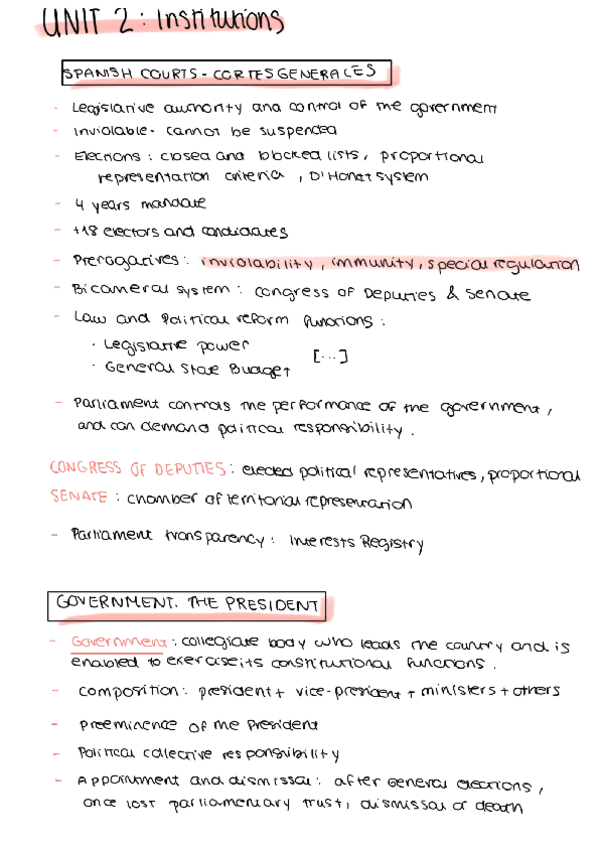 UNIT 2: Institutions
SPANISH COURTS - CORTES GENERALES
- Legislative authority and control of the government
- Inviolable - cannot be suspended
- Elections: closed and blocked lists, proportional
representation criteria, D'Hondt system
- 4 years mandate
- +18 electors and candidates
- Prerogatives: inviolability, immunity, special regulation
- Bicameral system: congress of Deputies & Senate
- Law and Political reform functions:
· Legislative power
[...]
· General State Budget
- Parliament controls the performance of the government,
and can demand political responsibility.
CONGRESS OF DEPUTIES: elected political representatives, proportional
SENATE: chamber of territorial representation
- Parliament transparency: Interests Registry
GOVERNMENT. THE PRESIDENT
- Government: collegiate body who leads the country and is
enabled to exercise its constitutional functions.
- Composition: president + vice-president + ministers + others
- Preeminence of the President
- Political collective responsibility
- Appointment and dismissal: after General elections,
once lost parliamentary trust, dismissal or death